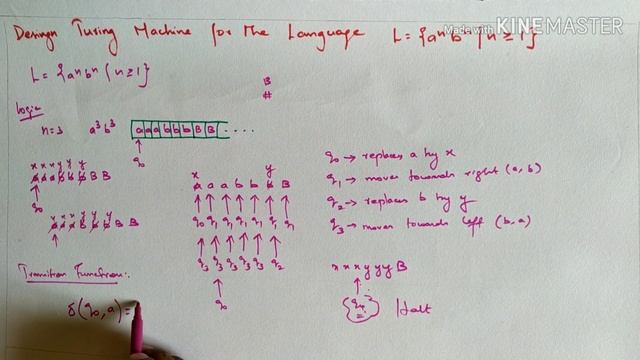 Made with KINEMASTER
Design Turing Machine for the Language L = {aⁿbⁿ | n ≥ 1}
L = {aⁿbⁿ | n ≥ 1}
B
#
Logic
n=3 a³b³ a a a b b b B B ....
q₀
x x x y y y
a a a b b b B B
q₀
x x x y y y
a a a b b b B B
x y
a a a b b b B
q₀ q₁ q₁ q₁ q₁ q₁ q₁
q₃ q₃ q₃ q₃ q₃ q₂
q₀
q₀ → replaces a by x
q₁ → moves towards right (a, b)
q₂ → replaces b by y
q₃ → moves towards left (b, a)
x x x y y y B
{q₄} Halt
Transition Function:
δ(q₀, a) =